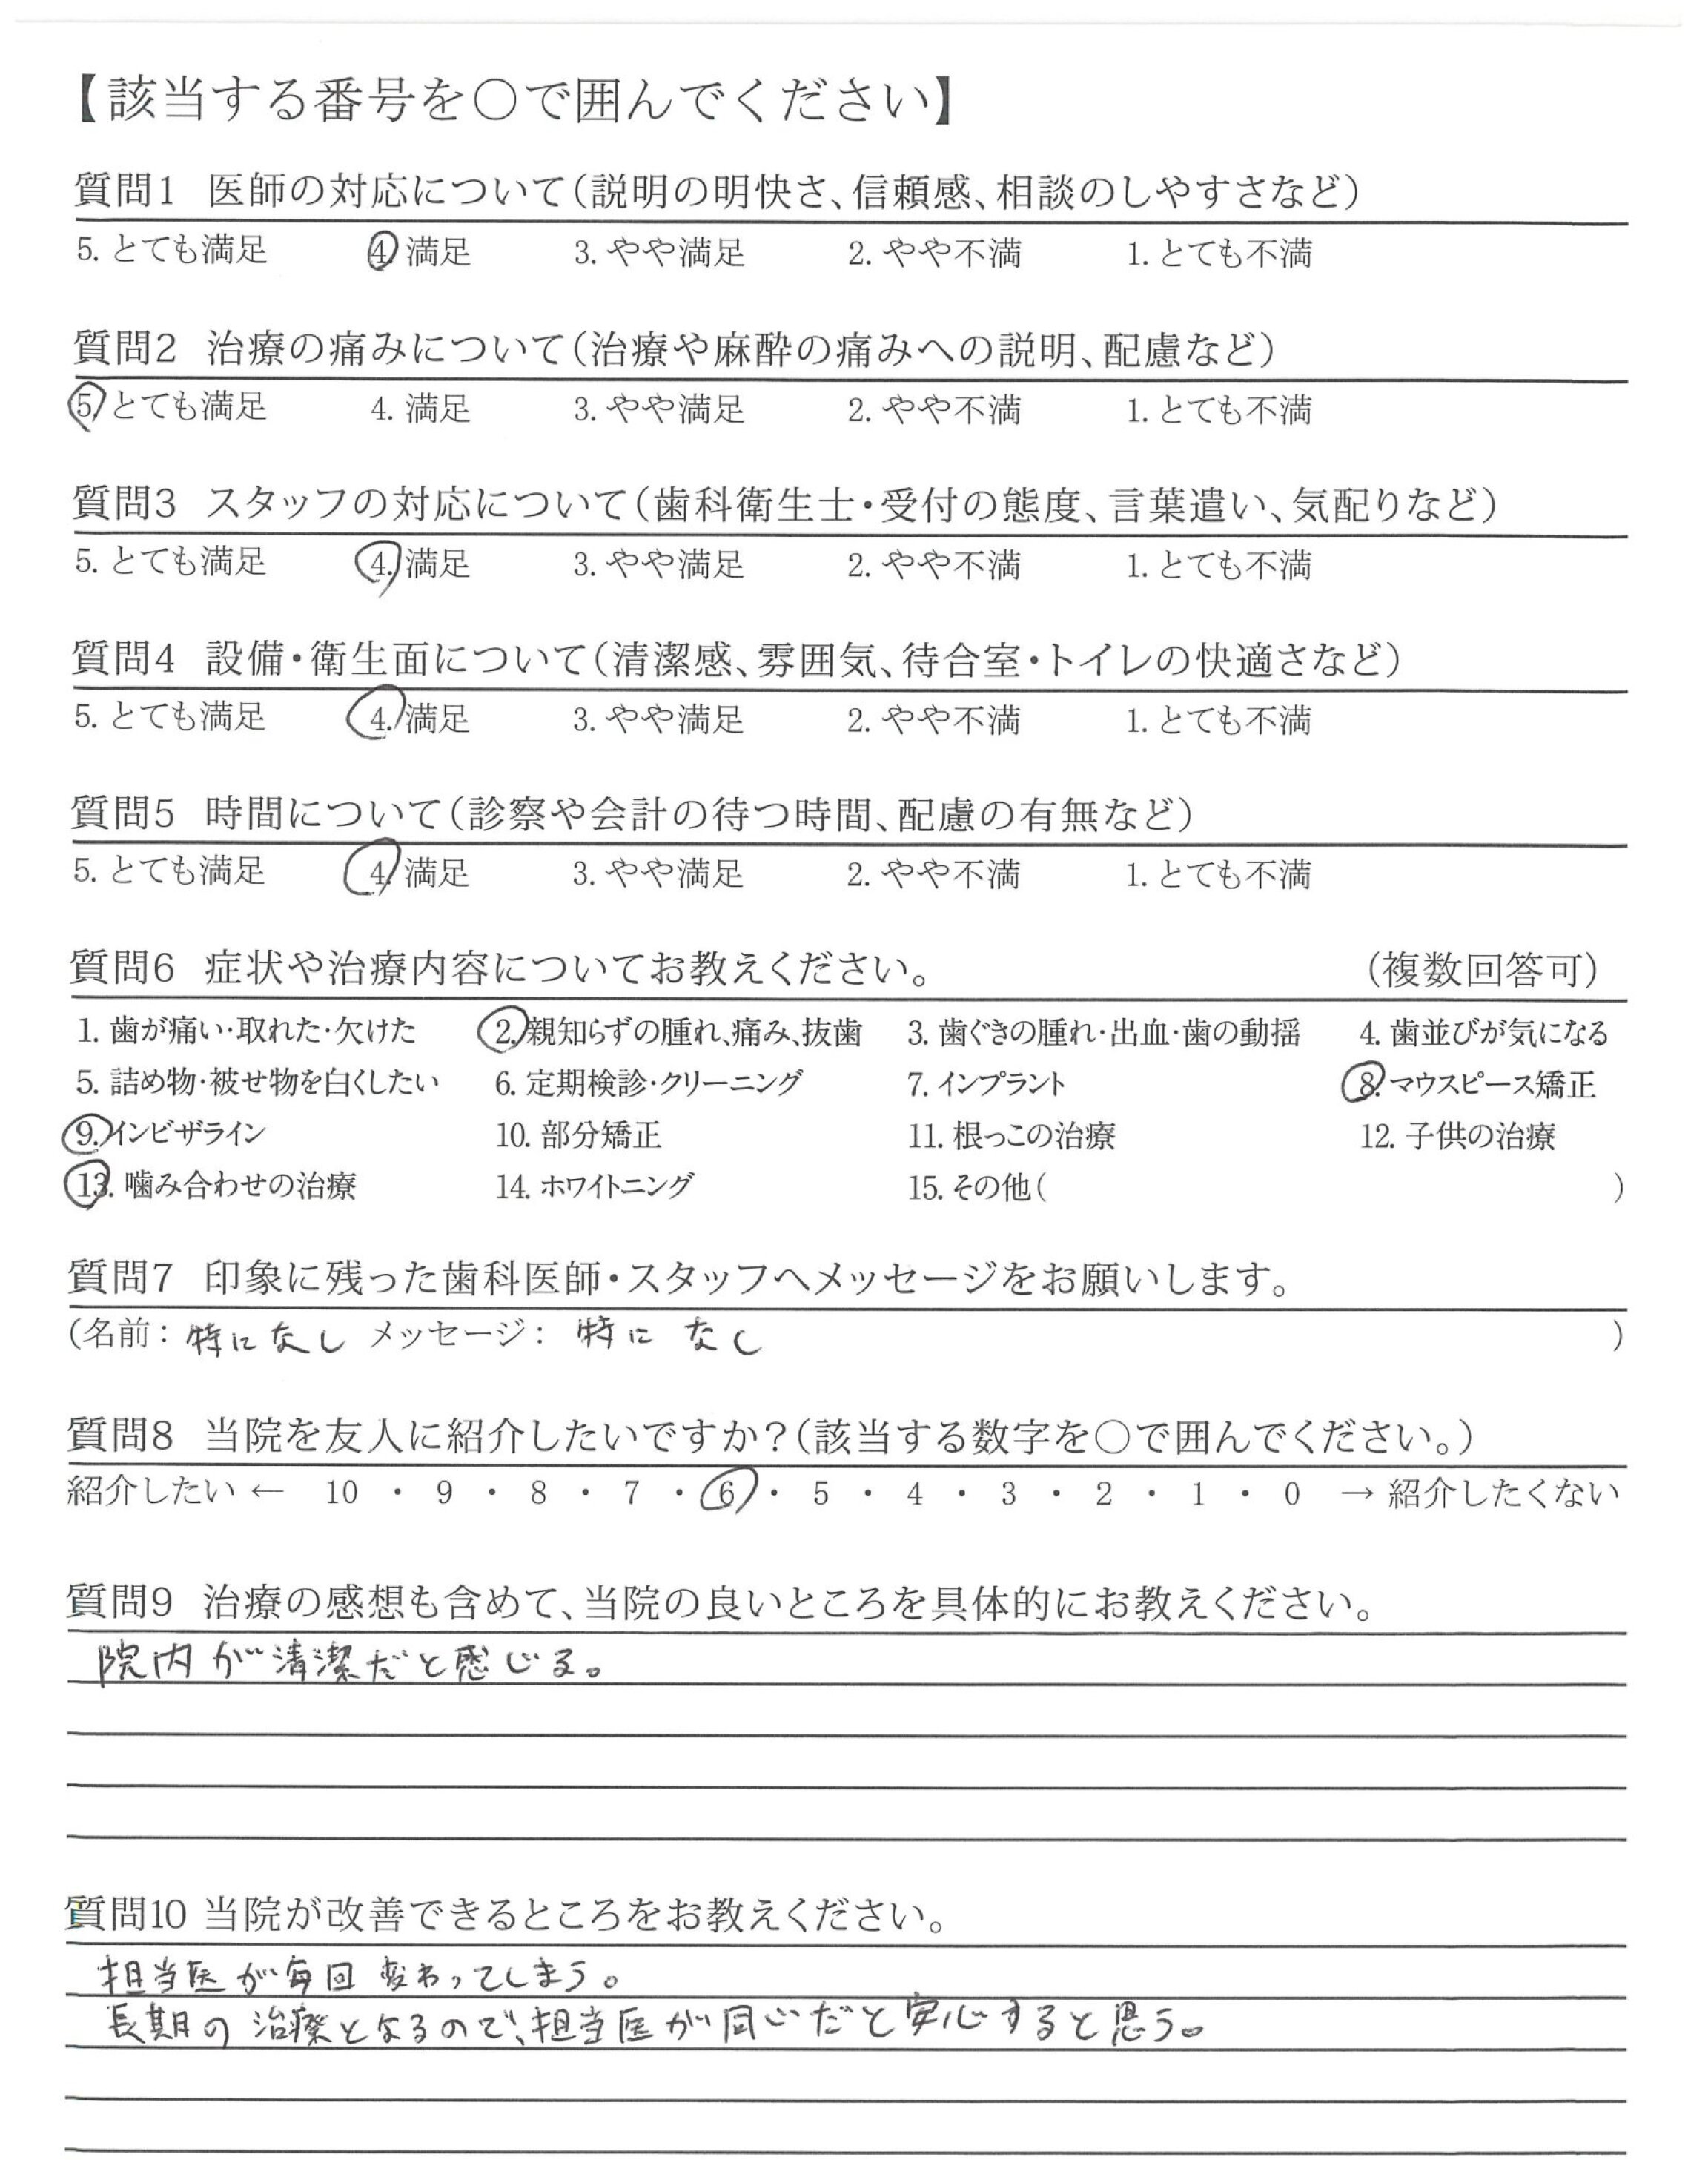 【該当する番号を○で囲んでください】
質問1 医師の対応について(説明の明快さ、信頼感、相談のしやすさなど)
5. とても満足 4. 満足 3. やや満足 2. やや不満 1. とても不満
質問2 治療の痛みについて(治療や麻酔の痛みへの説明、配慮など)
5. とても満足 4. 満足 3. やや満足 2. やや不満 1. とても不満
質問3 スタッフの対応について(歯科衛生士・受付の態度、言葉遣い、気配りなど)
5. とても満足 4. 満足 3. やや満足 2. やや不満 1. とても不満
質問4 設備・衛生面について(清潔感、雰囲気、待合室・トイレの快適さなど)
5. とても満足 4. 満足 3. やや満足 2. やや不満 1. とても不満
質問5 時間について(診察や会計の待つ時間、配慮の有無など)
5. とても満足 4. 満足 3. やや満足 2. やや不満 1. とても不満
質問6 症状や治療内容についてお教えください。 (複数回答可)
1. 歯が痛い・取れた・欠けた 2. 親知らずの腫れ、痛み、抜歯 3. 歯ぐきの腫れ・出血・歯の動揺 4. 歯並びが気になる
5. 詰め物・被せ物を白くしたい 6. 定期検診・クリーニング 7. インプラント 8. マウスピース矯正
9. インビザライン 10. 部分矯正 11. 根っこの治療 12. 子供の治療
13. 噛み合わせの治療 14. ホワイトニング 15. その他( )
質問7 印象に残った歯科医師・スタッフへメッセージをお願いします。
(名前: 特になし メッセージ: 特に なし )
質問8 当院を友人に紹介したいですか?(該当する数字を○で囲んでください。)
紹介したい ← 10 ・ 9 ・ 8 ・ 7 ・ 6 ・ 5 ・ 4 ・ 3 ・ 2 ・ 1 ・ 0 → 紹介したくない
質問9 治療の感想も含めて、当院の良いところを具体的にお教えください。
院内が清潔だと感じる。
質問10 当院が改善できるところをお教えください。
担当医が毎回変わってしまう。
長期の治療となるので、担当医が同じだと安心すると思う。